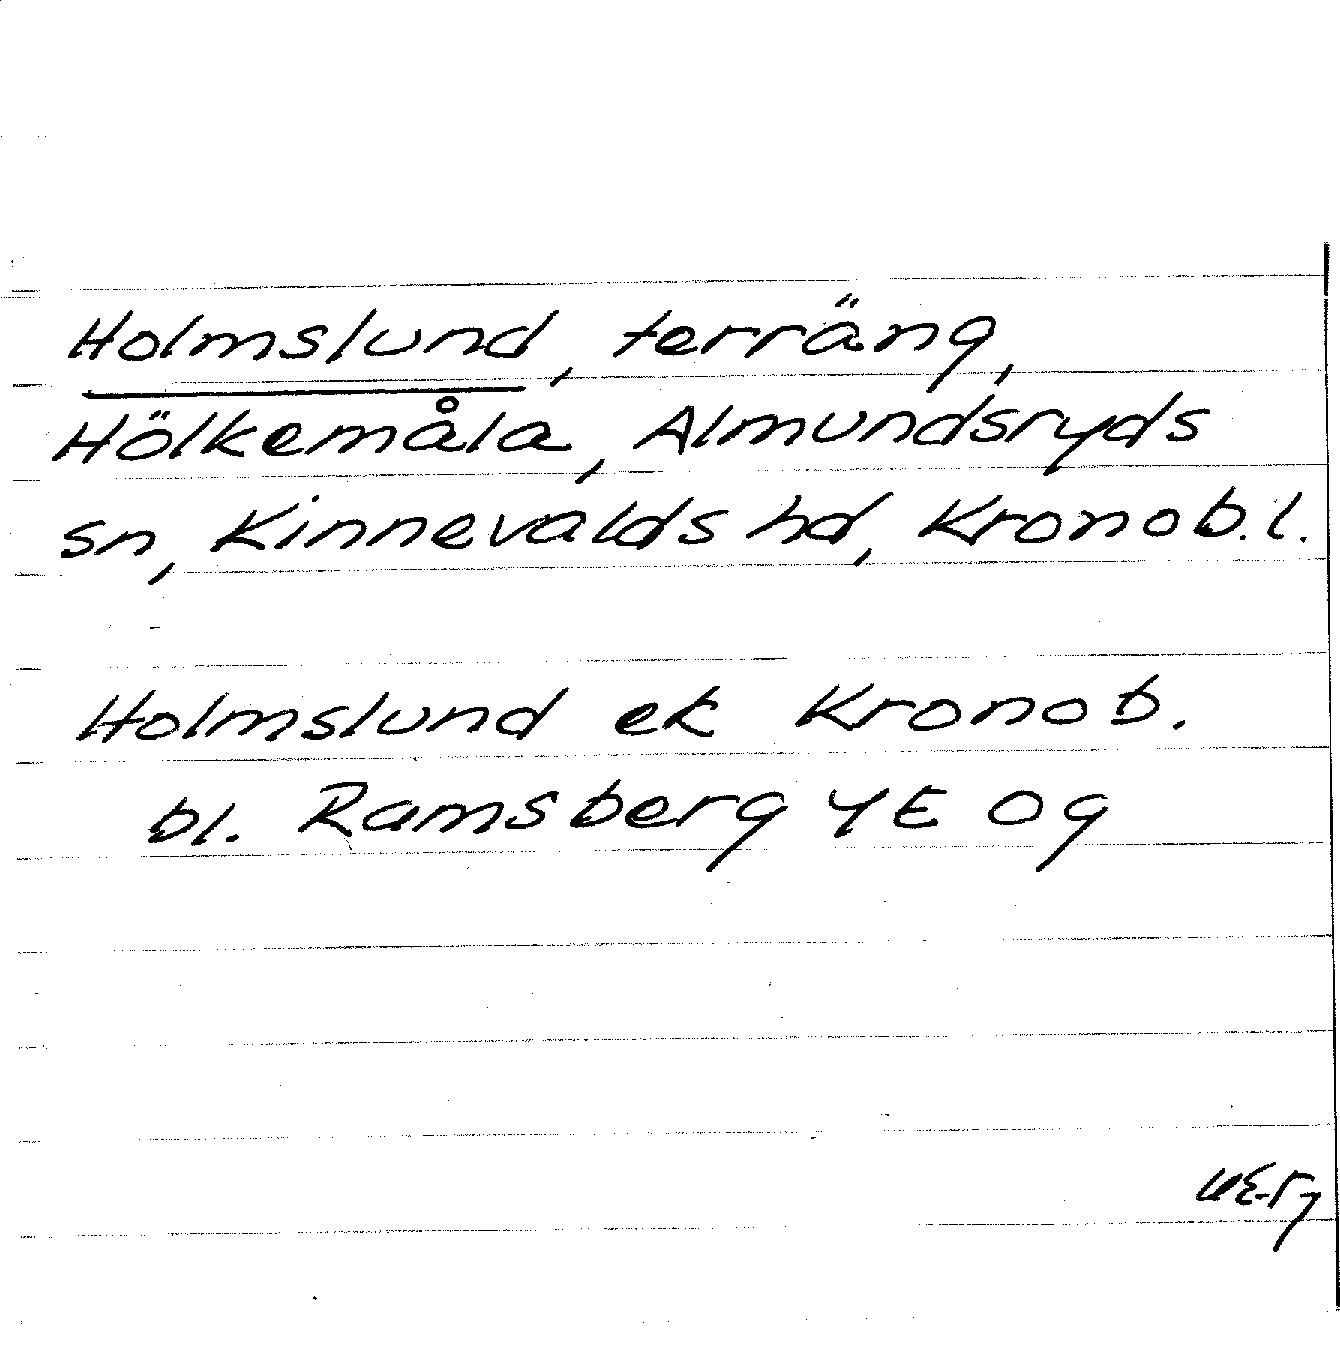 Holmslund, terräng,
Hölkemåla, Almundsryds
sn, Kinnevalds hd, Kronob.l.
Holmslund ek Kronob.
bl. Ramsberg YE Og